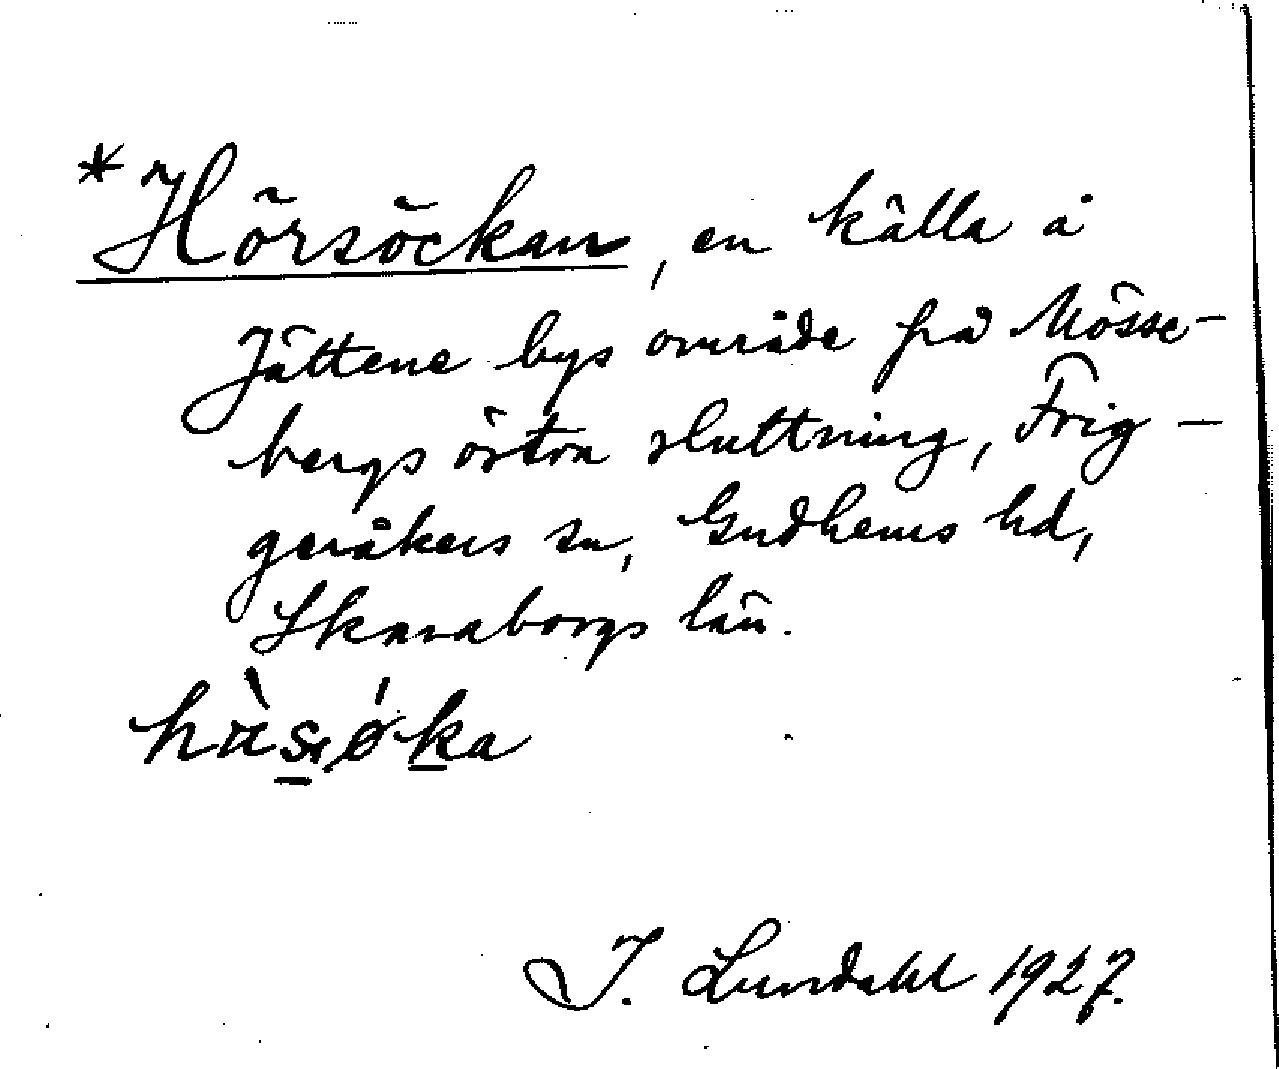 *Hörsöckan, en källa å
Jättene bys område på Mösse-
bergs östra sluttning, Frig-
geråkers sn, Gudhems hd,
Skaraborgs län.
I. Lundahl 1927.